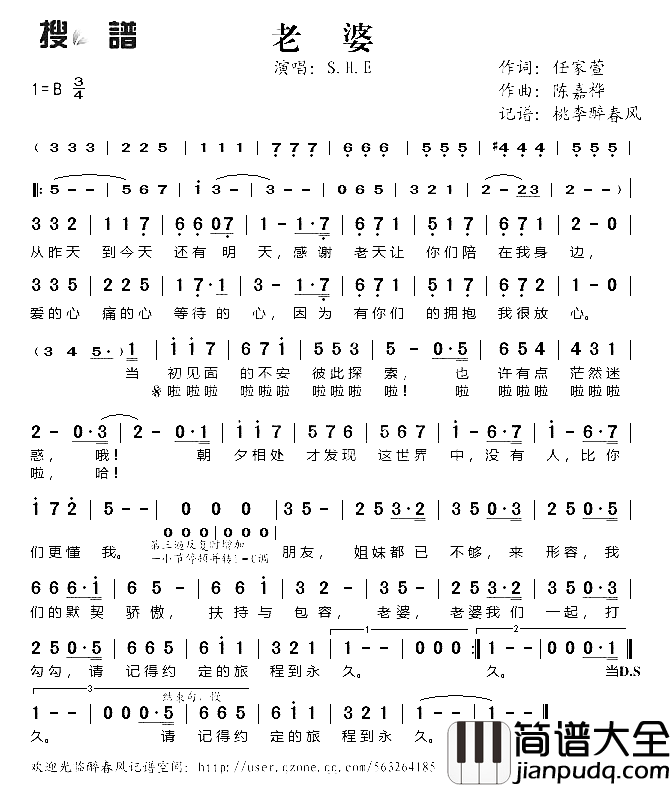 搜 谱
老 婆
演唱：S.H.E
作词：任家萱
1=B 3/4
作曲：陈嘉桦
记谱：桃李醉春风
( 3 3 3 | 2 2 5 | 1 1 1 | 7 7 7 | 6 6 6 | 5 5 5 | #4 4 4 | 5 5 5 |
‖: 5 - - | 5 6 7 | i 3 - | 3 - - | 0 6 5 | 3 2 1 | 2 - 23 | 2 - - ) |
3 3 2 | 1 1 7 | 6 6 07 | 1 - 1·7 | 6 7 1 | 5 1 7 | 6 7 1 | 2 - 0 |
从昨天 到今天 还有 明 天，感谢 老天让 你们陪 在我身 边，
3 3 5 | 2 2 5 | 1 7·1 | 3 - 1·7 | 6 7 1 | 5 1 7 | 6 7 1 | 1 - 0 |
爱的心 痛的心 等待的 心，因为 有你们 的拥抱 我很放 心。
( 3 4 5· ) 1 | i i 7 | 6 7 i | 5 5 3 | 5 - 0·5 | 6 5 4 | 4 3 1 |
当 初见面 的不安 彼此探 索， 也 许有点 茫然迷
※啦啦啦 啦啦啦 啦啦啦 啦！ 啦 啦啦啦 啦啦啦
2 - 0·3 | 2 - 0·1 | i i 7 | 5 7 6 | 5 6 7 | i - 6·7 | i - 6·7 |
惑，哦！ 朝 夕相处 才发现 这世界 中，没有 人，比你
啦，哈！
i 7 2 | 5 - - | 0 0 0 | 3 5 - | 2 5 3·2 | 3 5 0·3 | 2 5 0·5 |
0 0 0 | 0 0 0 |
们更懂 我。 第三遍反复时增加 朋友， 姐妹都已 不够，来 形容，我
一小节停顿并转1=C调
6 6 6·i | 6 5 - | 6 6 5 | 3 5 - | 2 5 3·2 | 3 5 0·3 |
们的默契 骄傲， 扶持与 包容， 老婆， 老婆我们 一起，打
2 5 0·5 | 6 6 5 | 6 i i | 3 2 1 | 1 - - | 0 0 0 :‖ 1 - - | 0 0 0·1 ‖
勾勾，请 记得约 定的旅 程到永 久。 久。 当D.S
3 结束句，慢
1 - - | 0 0 0·5 | 6 6 5 | 6 i i | 3 2 1 | 1 - - | 1 - - ‖
久。 请 记得约 定的旅 程到永 久。
欢迎光临醉春风记谱空间：http://user.qzone.qq.com/563264185
简谱大全
jianpudq.com